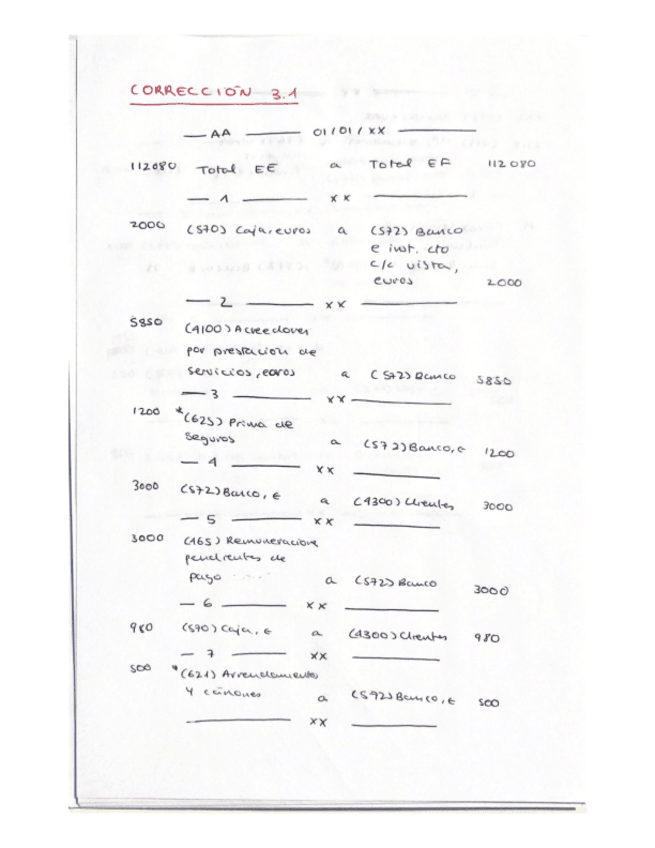 CORRECCIÓN 3.1
— AA ——— 01/01/XX ———
112080 Total EE a Total EF 112080
— 1 ——— XX ———
2000 (570) Caja, euros a (572) Banco
e inst. cto
c/c vista,
euros 2000
— 2 ——— XX ———
5850 (4100) Acreedores
por prestación de
servicios, euros a (572) Banco 5850
— 3 ——— XX ———
1200 *(625) Prima de
Seguros a (572) Banco, € 1200
— 4 ——— XX ———
3000 (572) Banco, € a (4300) Clientes 3000
— 5 ——— XX ———
3000 (465) Remuneracione
pendientes de
pago a (572) Banco 3000
— 6 ——— XX ———
980 (570) Caja, € a (4300) Clientes 980
— 7 ——— XX ———
500 *(621) Arrendamientos
y cánones a (572) Banco, € 500
——— XX ———